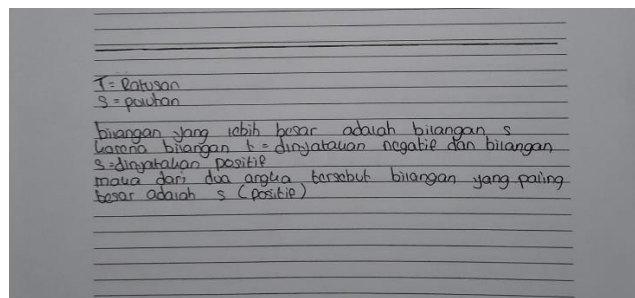 T = Ratusan
S = puluhan
bilangan yang lebih besar adalah bilangan s
karena bilangan t = dinyatakan negatif dan bilangan
s = dinyatakan positif
maka dari dua angka tersebut bilangan yang paling
besar adalah s (positif)